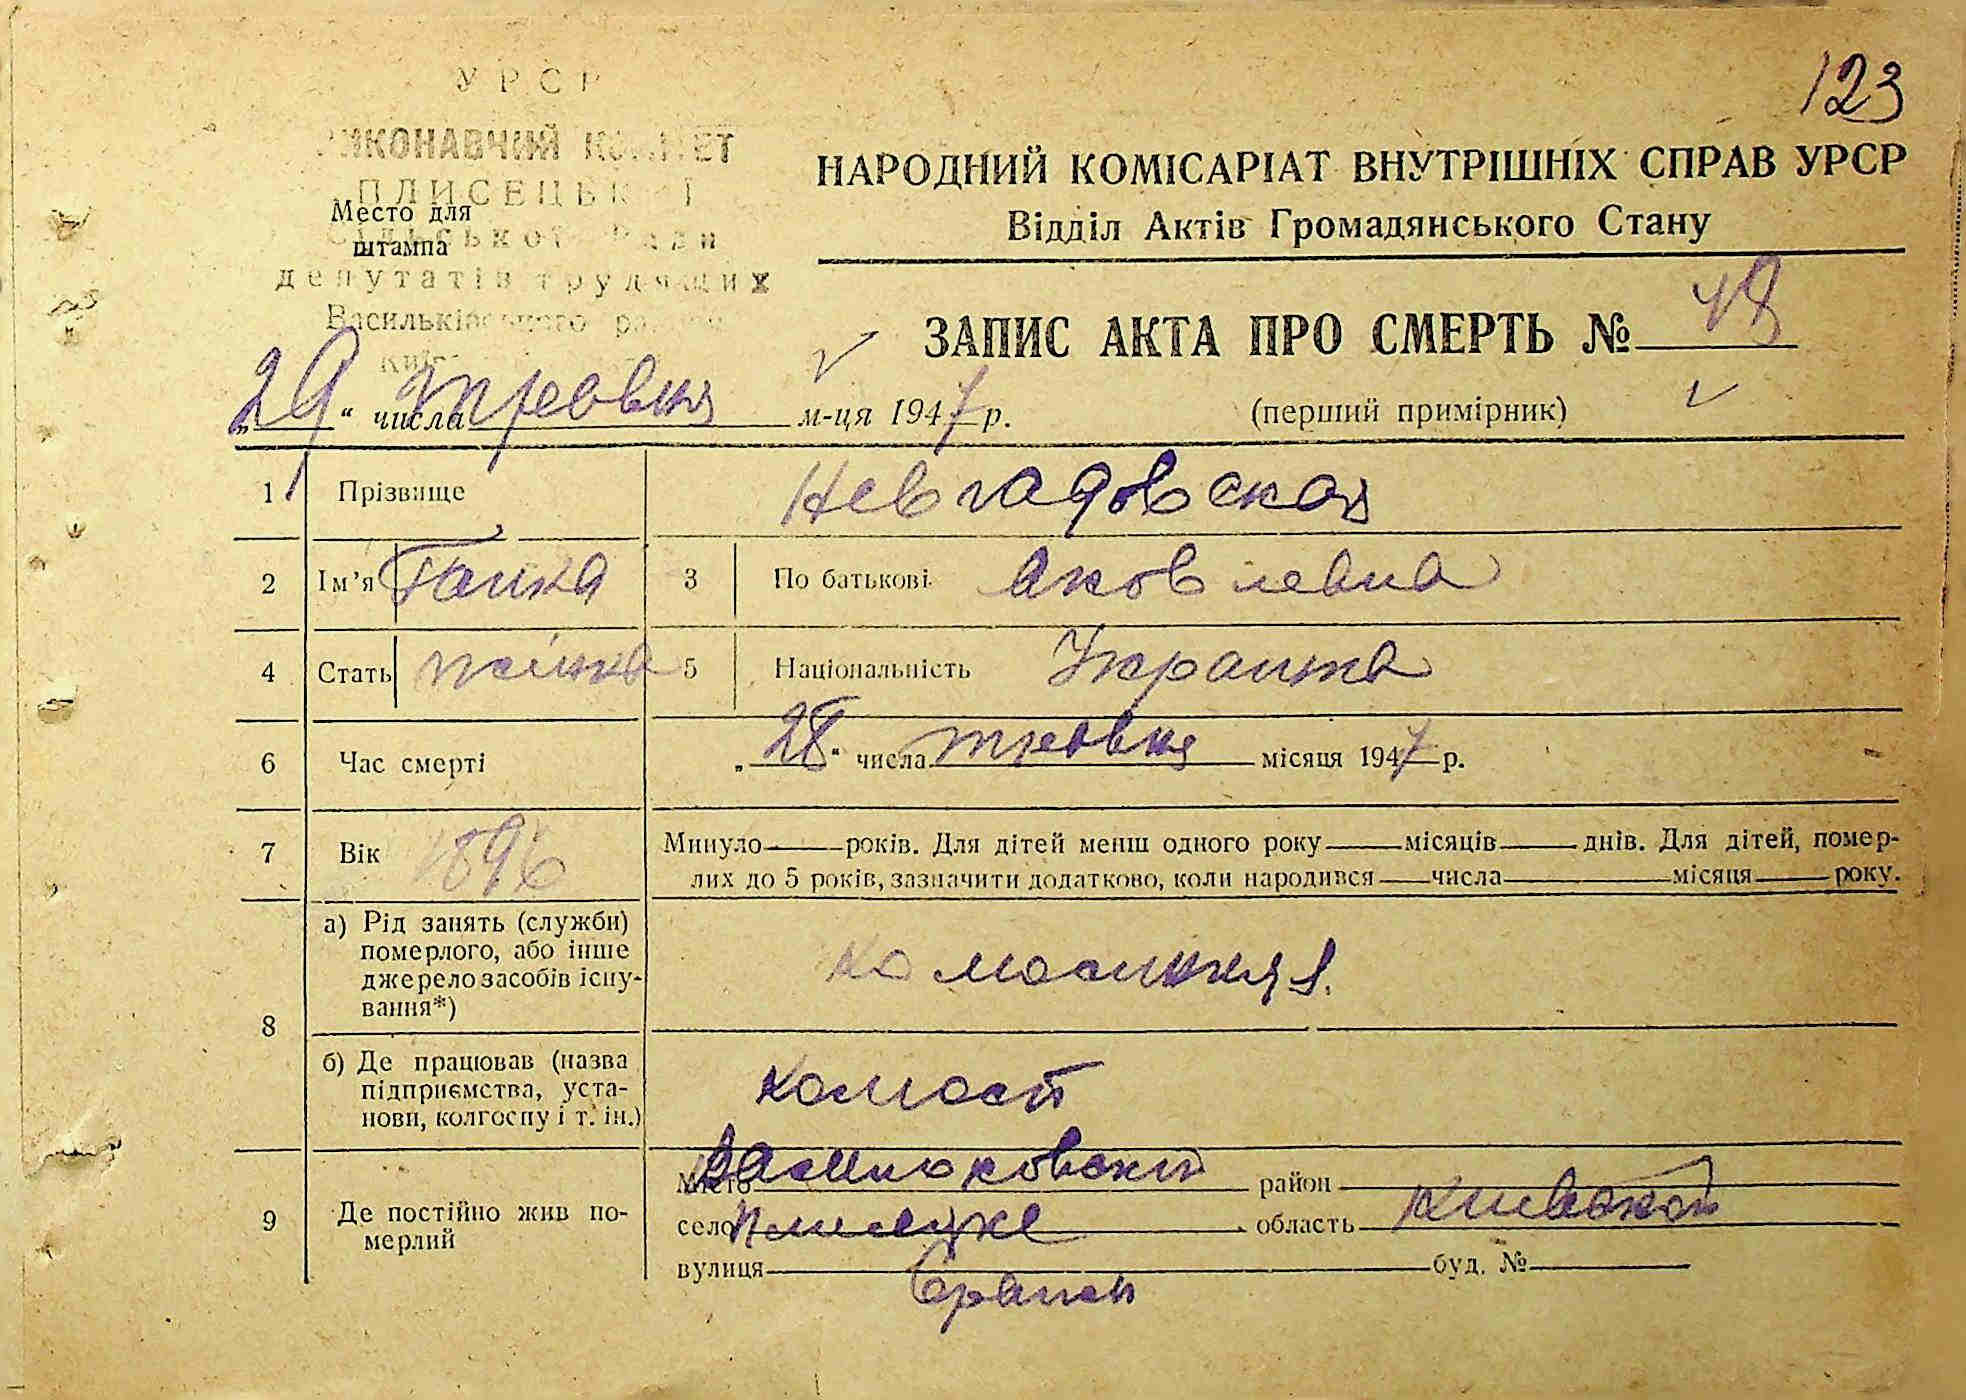 123
УРСР
ВИКОНАВЧИЙ КОМІТЕТ
ПЛИСЕЦЬКОЇ
Сільської Ради
депутатів трудящих
Васильківського району
Место для
штампа
НАРОДНИЙ КОМІСАРІАТ ВНУТРІШНІХ СПРАВ УРСР
Відділ Актів Громадянського Стану
ЗАПИС АКТА ПРО СМЕРТЬ №
„29“ числа травня м-ця 1947 р. (перший примірник)
1 Прізвище Невгадовская
2 Ім'я Ганна 3 По батькові Яковлевна
4 Стать жінка 5 Національність Українка
6 Час смерті „28“ числа травня місяця 1947 р.
7 Вік 1896 Минуло — років. Для дітей менш одного року — місяців — днів. Для дітей, помер-
лих до 5 років, зазначити додатково, коли народився — числа — місяця — року.
8 а) Рід занять (служби)
померлого, або інше
джерело засобів існу-
вання*)
б) Де працював (назва
підприємства, уста-
нови, колгоспу і т. ін.)
9 Де постійно жив по-
мерлий
місто Васильковский район
село Плисецке область Киевской
вулиця буд. №